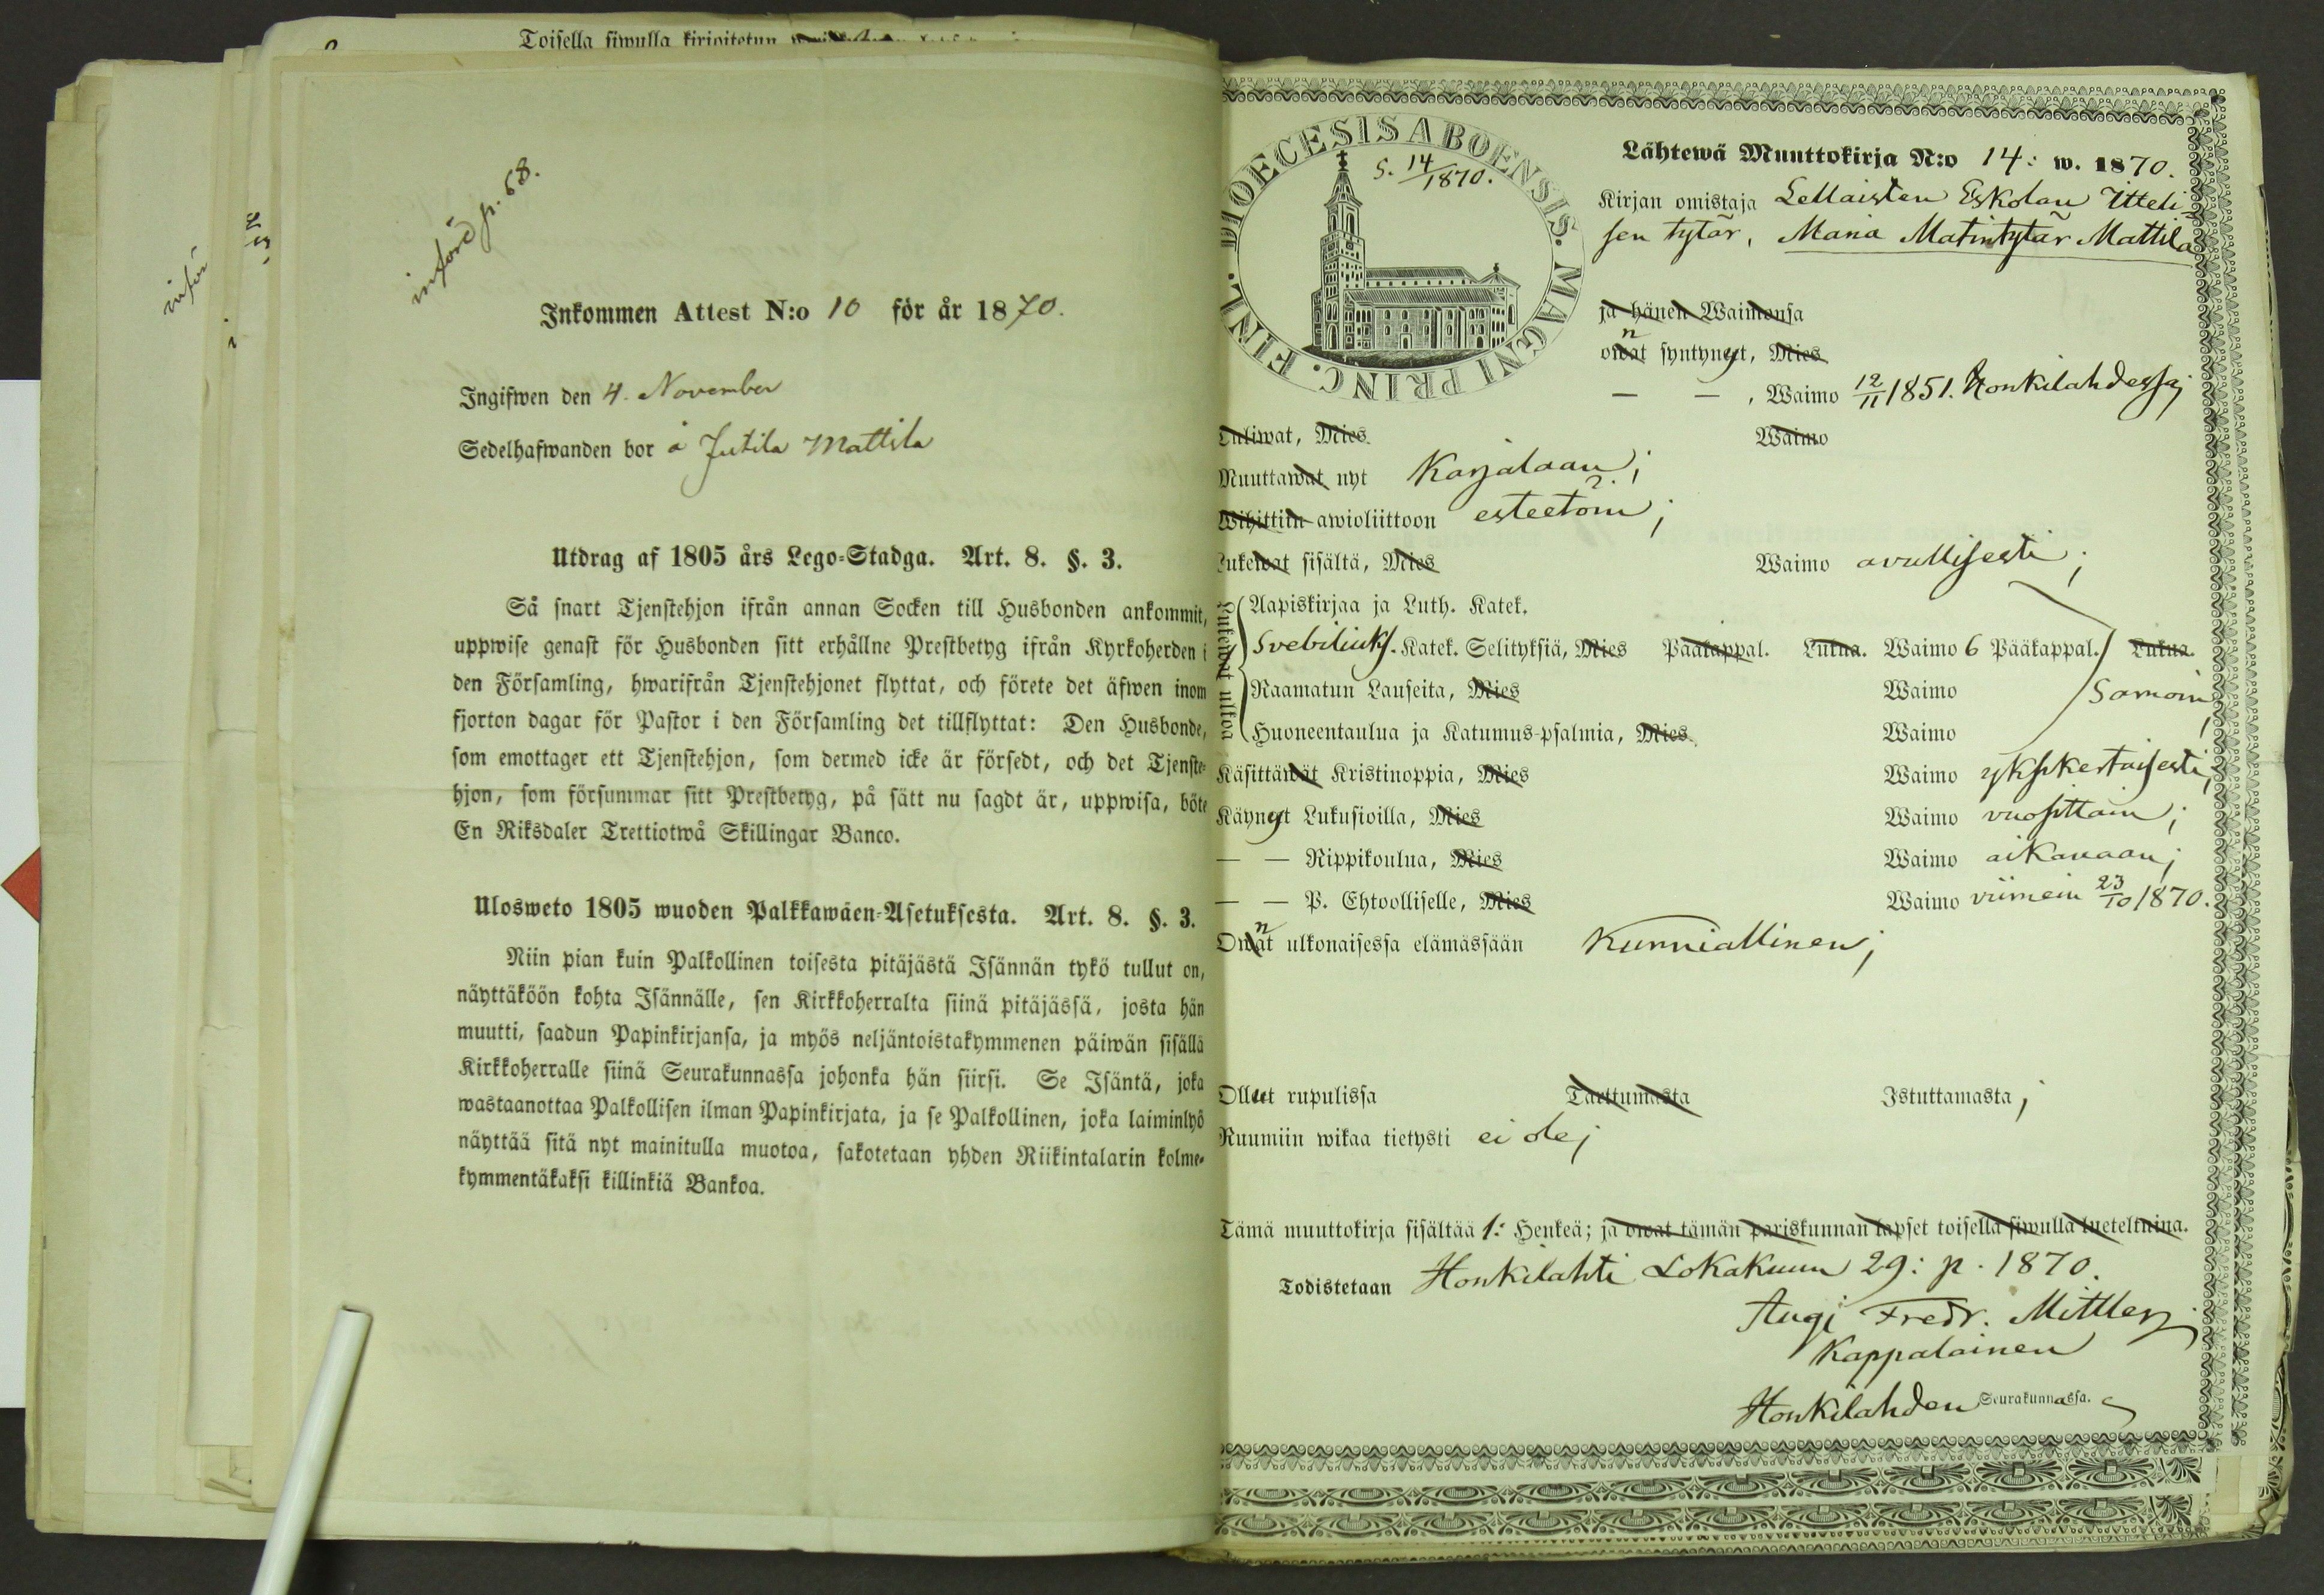 Toisella siwulla kirjoitetun
införd p. 68.
Inkommen Attest N:o 10 för år 1870.
Ingifwen den 4. November
Sedelhafwanden bor å Jutila Mattila
Utdrag af 1805 års Lego-Stadga. Art. 8. §. 3.
Så snart Tjenstehjon ifrån annan Socken till Husbonden ankommit,
uppwise genast för Husbonden sitt erhållne Prestbetyg ifrån Kyrkoherden i
den Församling, hwarifrån Tjenstehjonet flyttat, och förete det äfwen inom
fjorton dagar för Pastor i den Församling det tillflyttat: Den Husbonde,
som emottager ett Tjenstehjon, som dermed icke är försedt, och det Tjenste-
hjon, som försummar sitt Prestbetyg, på sätt nu sagdt är, uppwisa, böte
En Riksdaler Trettiotwå Skillingar Banco.
Ulosweto 1805 wuoden Palkkawäen-Asetuksesta. Art. 8. §. 3.
Niin pian kuin Palkollinen toisesta pitäjästä Isännän tykö tullut on,
näyttäköön kohta Isännälle, sen Kirkkoherralta siinä pitäjässä, josta hän
muutti, saadun Papinkirjansa, ja myös neljäntoistakymmenen päiwän sisällä
Kirkkoherralle siinä Seurakunnassa johonka hän siirsi. Se Isäntä, joka
wastaanottaa Palkollisen ilman Papinkirjata, ja se Palkollinen, joka laiminlyö
näyttää sitä nyt mainitulla muotoa, sakotetaan yhden Riikintalarin kolme-
kymmentäkaksi killinkiä Bankoa.
DIOECESIS ABOENSIS. MAGNI PRINC. FINL.
S. 14/1870.
Lähtewä Muuttokirja N:o 14: w. 1870.
Kirjan omistaja Lellaisten Eskolan Itteli-
sen tytär, Maria Matintytär Mattila
ja hänen Waimonsa
owat n syntynyt, Mies
— — , Waimo 12/11 1851. Honkilahdessa;
Tuliwat, Mies Waimo
Muuttawat nyt Karjalaan;
Wihittiin awioliittoon esteetöin;
Lukewat sisältä, Mies Waimo avullisesti;
Lukewat ulkoa
Aapiskirjaa ja Luth. Katek.
Svebiliuks. Katek. Selityksiä, Mies Pääkappal. Lukua. Waimo 6 Pääkappal. Lukua.
Raamatun Lauseita, Mies Waimo Samoin,
Huoneentaulua ja Katumus-psalmia, Mies Waimo
Käsittäwät Kristinoppia, Mies Waimo yksikertaisesti,
Käynyt Lukusioilla, Mies Waimo vuosittain;
— — Rippikoulua, Mies Waimo aikanaan;
— — P. Ehtoolliselle, Mies Waimo viimein 23/10 1870.
Owat n ulkonaisessa elämässään Kunniallinen;
Ollut rupulissa Tarttumasta Istuttamasta;
Ruumiin wikaa tietysti ei ole;
Tämä muuttokirja sisältää 1: Henkeä; ja owat tämän pariskunnan lapset toisella siwulla lueteltuina.
Todistetaan Honkilahti Lokakuun 29: p. 1870.
Fredr. Mittler
Kappalainen
Honkilahden Seurakunnassa.